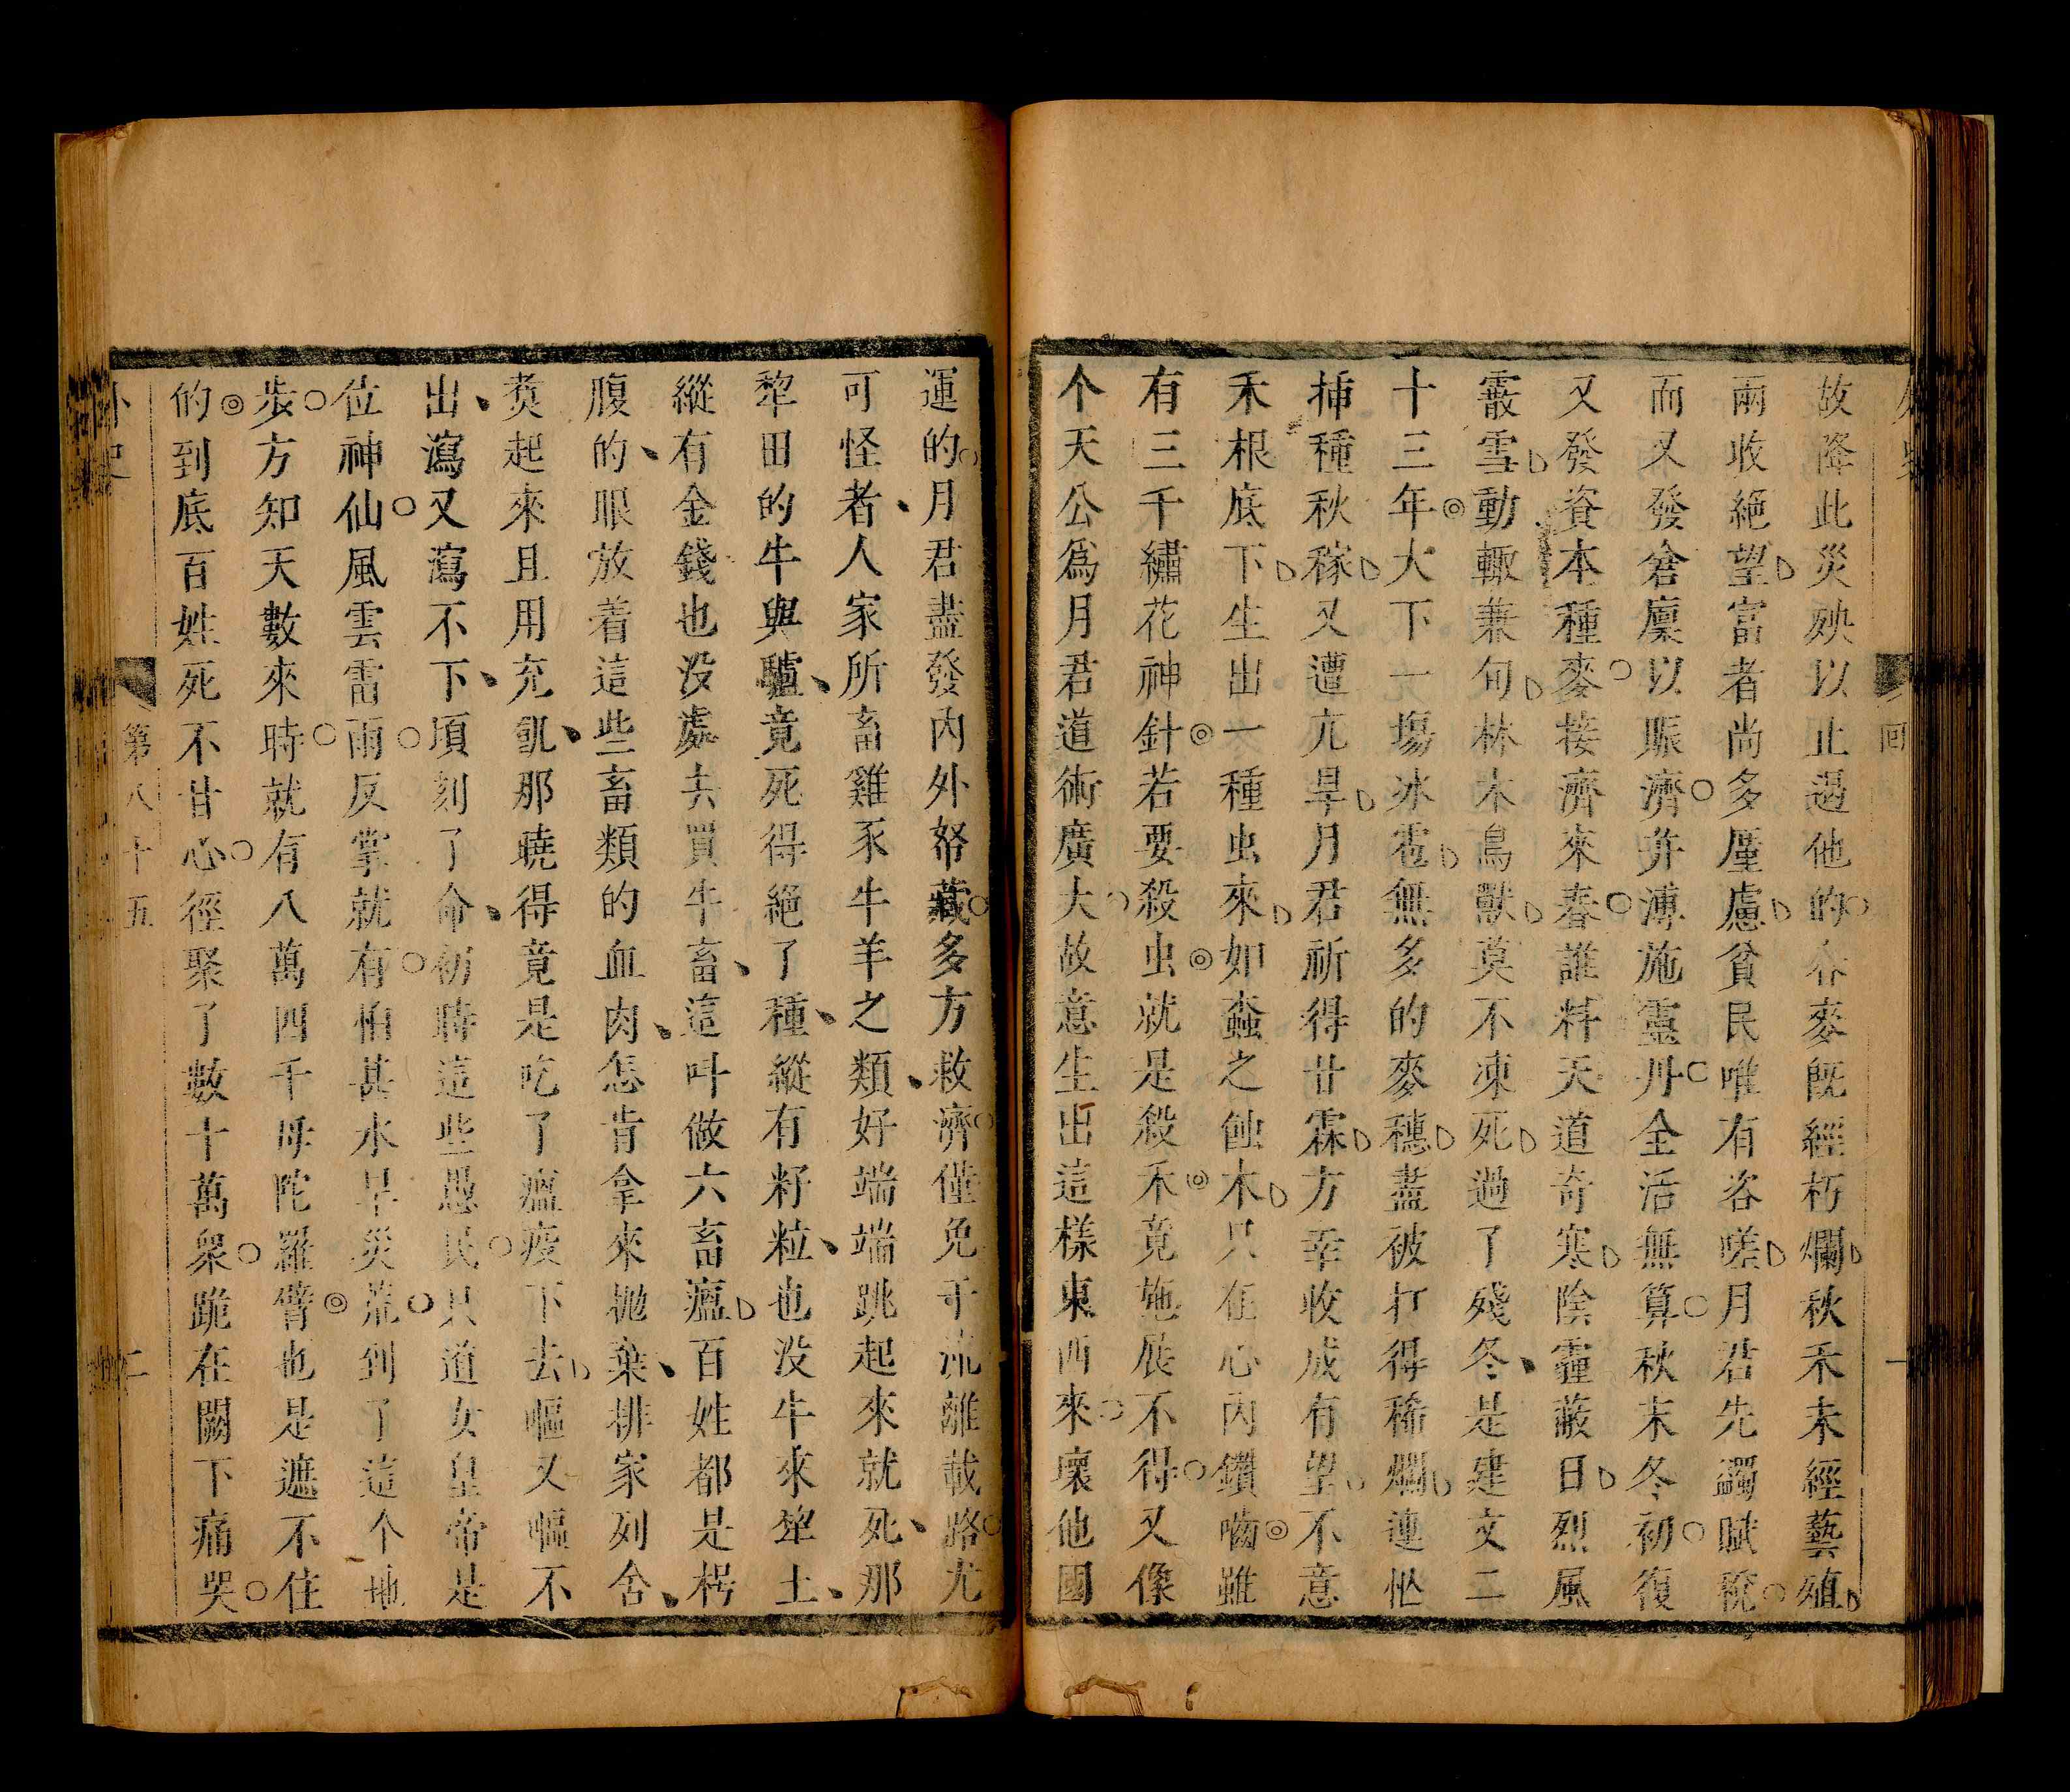 故降此災殃以止遏他的春麥既經朽爛秋禾未經藝殖
兩收絕望富者尚多廑慮貧民唯有咨嗟月君先蠲賦稅
而又發倉廩以賑濟并溥施靈丹全活無算秋末冬初復
又發資本種麥接濟來春誰料天道奇寒陰霾蔽日烈風
霰雪動輙兼旬林木鳥獸莫不凍死過了殘冬是建文二
十三年大下一塲冰雹無多的麥穗盡被打得稀爛連忙
揷種秋稼又遭亢旱月君祈得甘霖方幸收成有望不意
禾根底下生出一種虫來如蠧之蝕木只在心內鑽嚙雖
有三千繡花神針若要殺虫就是殺禾竟施展不得又像
个天公爲月君道術廣大故意生出這樣東西來壞他國
運的月君盡發內外帑藏多方救濟僅免于流離載路尤
可怪者人家所畜雞豕牛羊之類好端端跳起來就死那
犂田的牛與驢竟死得絕了種縱有籽粒也没牛來犂土
縱有金錢也没處去買牛畜這叫做六畜瘟百姓都是枵
腹的眼放着這些畜類的血肉怎肯拿來抛棄排家列舍
煑起來且用充飢那曉得竟是吃了瘟疫下去嘔又嘔不
出瀉又瀉不下頃刻了命初時這些愚民只道女皇帝是
位神仙風雲雷雨反掌就有怕甚水旱災荒到了這个地
步方知天數來時就有八萬四千母陀羅臂也是遮不住
的到底百姓死不甘心徑聚了數十萬衆跪在闕下痛哭
外史
第八十五
二